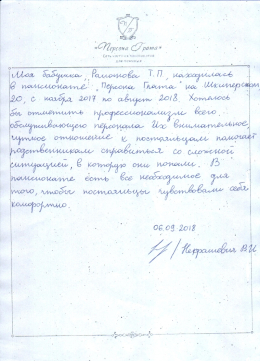 «Персона Грата»
Моя бабушка Т.П. находилась
в пансионате "Персона Грата" на
20, с ноября 2017 по август 2018. Хотелось
бы отметить профессионализм всего
обслуживающего персонала. Их внимательное,
чуткое отношение к постояльцам помогает
родственникам справиться со сложной
ситуацией, в которую они попали. В
пансионате есть все необходимое для
того, чтобы постояльцы чувствовали себя
комфортно.
06.09.2018